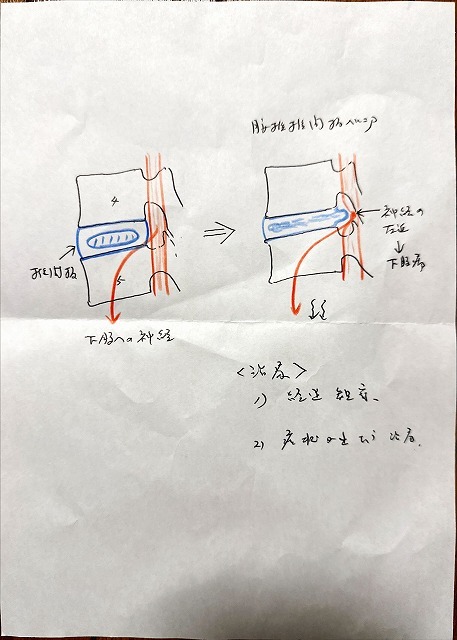 腰椎椎間板ヘルニア
4
椎間板
5
下肢への神経
神経の
圧迫
↓
下肢痛
<治療>
1) 経過観察、
2)
治療